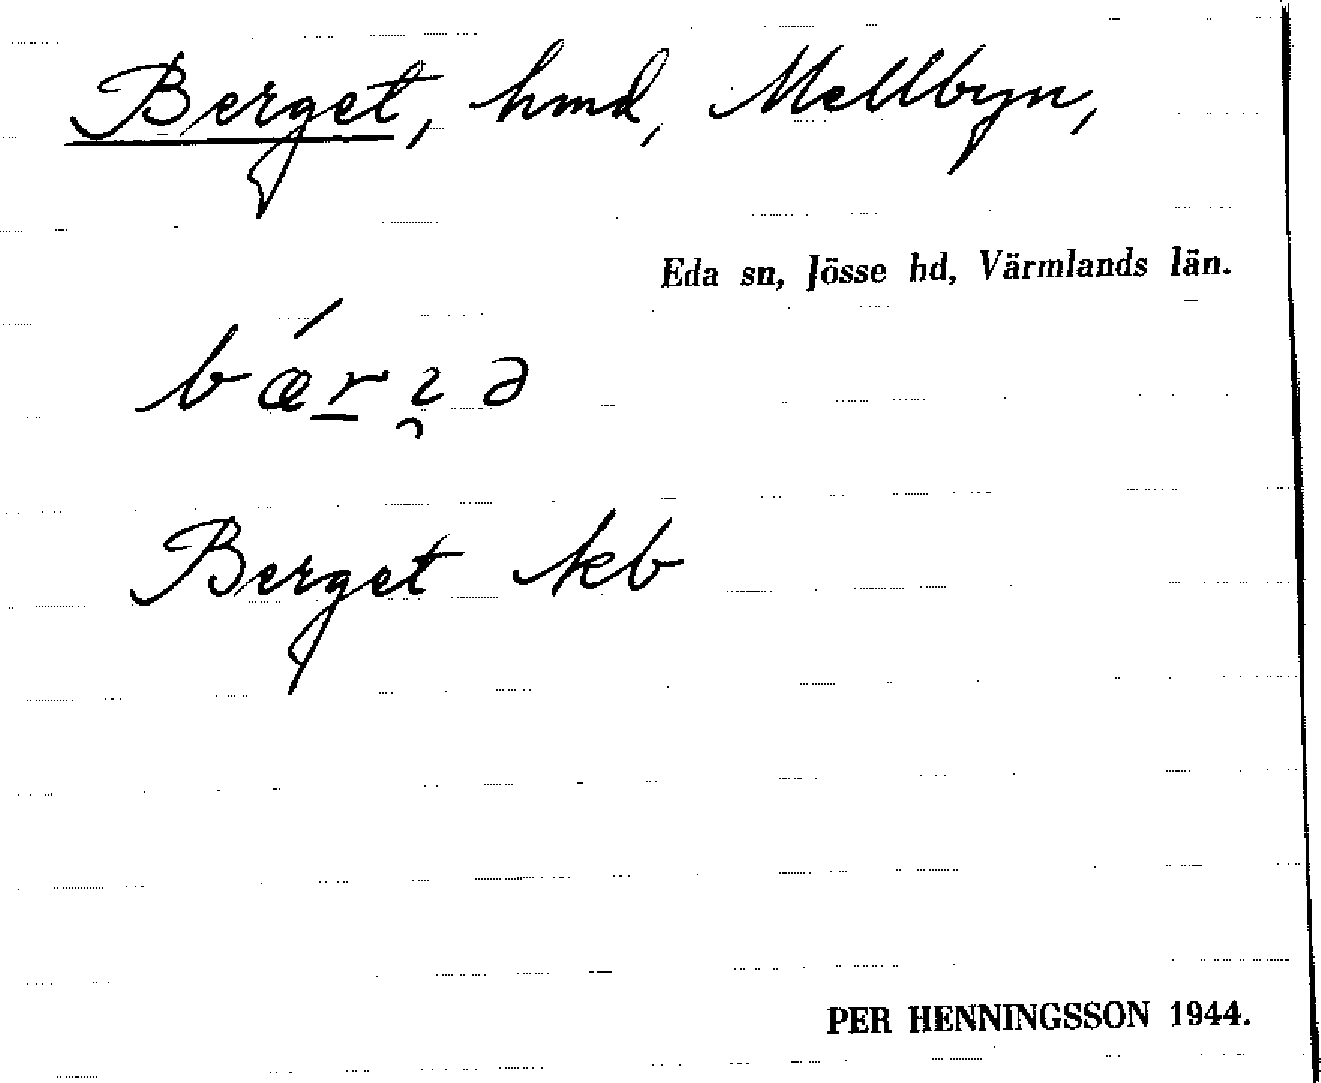 Berget, hmd, Mellbyn,
Eda sn, Jösse hd, Värmlands län.
bǽr̲ı̯ə
Berget kb
PER HENNINGSSON 1944.